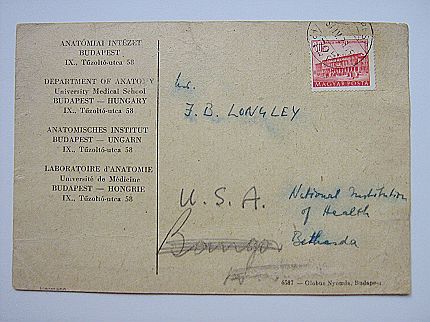 ANATÓMIAI INTÉZET
BUDAPEST
IX., Tűzoltó-utca 58
DEPARTMENT OF ANATOMY
University Medical School
BUDAPEST — HUNGARY
IX., Tűzoltó-utca 58
ANATOMISCHES INSTITUT
BUDAPEST — UNGARN
IX., Tűzoltó-utca 58
LABORATOIRE d'ANATOMIE
Université de Médicine
BUDAPEST — HONGRIE
IX., Tűzoltó-utca 58
MAGYAR POSTA
J. B. LONGLEY
U. S. A.
National Institution
of Health
Bethesda
6587 — Globus Nyomda, Budapest